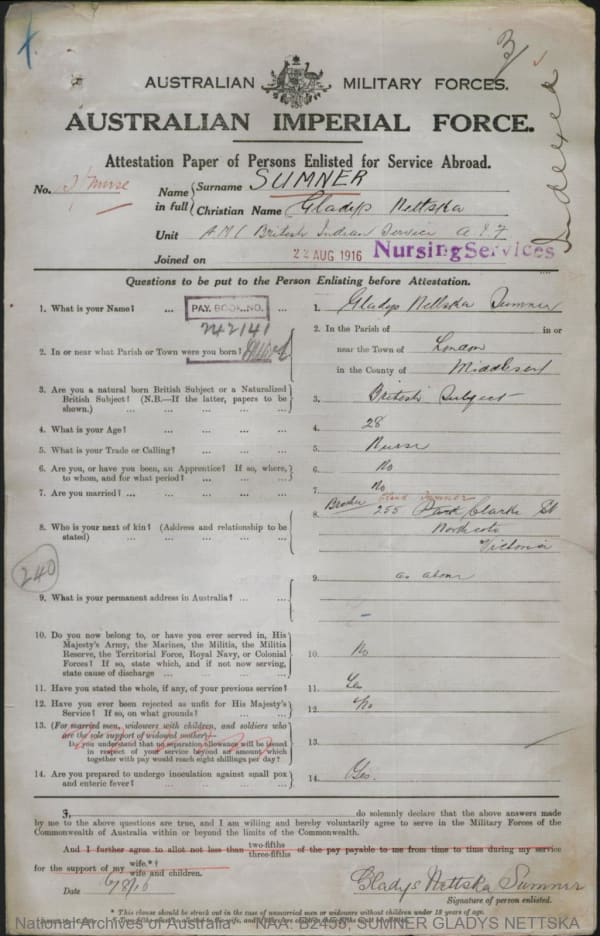 3/
AUSTRALIAN MILITARY FORCES.
AUSTRALIAN IMPERIAL FORCE.
Indexed
Attestation Paper of Persons Enlisted for Service Abroad.
No. S/Nurse
Name in full { Surname SUMNER
Christian Name Gladys Nettska
Unit A.M.C British Indian Service A I F
Joined on 22 AUG 1916 Nursing Services
Questions to be put to the Person Enlisting before Attestation.
1. What is your Name? ... ... 1. Gladys Nettska Sumner
PAY. BOOK. NO.
242141
2. In or near what Parish or Town were you born? 2. In the Parish of in or
near the Town of London
in the County of Middlesex
3. Are you a natural born British Subject or a Naturalized
British Subject? (N.B.—If the latter, papers to be
shown.) ... ... ... ... 3. British Subject
4. What is your Age? ... ... ... ... 4. 28
5. What is your Trade or Calling? ... ... ... 5. Nurse
6. Are you, or have you been, an Apprentice? If so, where,
to whom, and for what period? ... ... ... 6. No
7. Are you married? ... ... ... ... ... 7. No
8. Who is your next of kin? (Address and relationship to be
stated) ... ... ... ... ... 8. Brother Sumner
255 Clarke St
Northcote
Victoria
240
9. What is your permanent address in Australia? ... ... 9. as above
10. Do you now belong to, or have you ever served in, His
Majesty's Army, the Marines, the Militia, the Militia
Reserve, the Territorial Force, Royal Navy, or Colonial
Forces? If so, state which, and if not now serving,
state cause of discharge ... ... ... ... 10. No
11. Have you stated the whole, if any, of your previous service? 11. Yes
12. Have you ever been rejected as unfit for His Majesty's
Service? If so, on what grounds? ... ... ... 12. No
13. (For married men, widowers with children, and soldiers who
are the sole support of widowed mother)—
Do you understand that no separation allowance will be issued
in respect of your service beyond an amount which
together with pay would reach eight shillings per day? 13.
14. Are you prepared to undergo inoculation against small pox
and enteric fever? ... ... ... ... ... 14. Yes.
I, do solemnly declare that the above answers made
by me to the above questions are true, and I am willing and hereby voluntarily agree to serve in the Military Forces of the
Commonwealth of Australia within or beyond the limits of the Commonwealth.
And I further agree to allot not less than two-fifths three-fifths of the pay payable to me from time to time during my service
for the support of my wife.*† wife and children.
Date 6/8/16
Gladys Nettska Sumner
Signature of person enlisted.
* This clause should be struck out in the case of unmarried men or widowers without children under 18 years of age.
National Archives of Australia NAA: B2455, SUMNER GLADYS NETTSKA